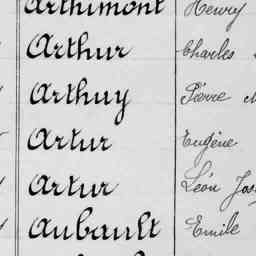 Arthimont Henry
Arthur Charles
Arthuy Pierre
Artur Eugène
Artur Léon Jos
Aubault Emile